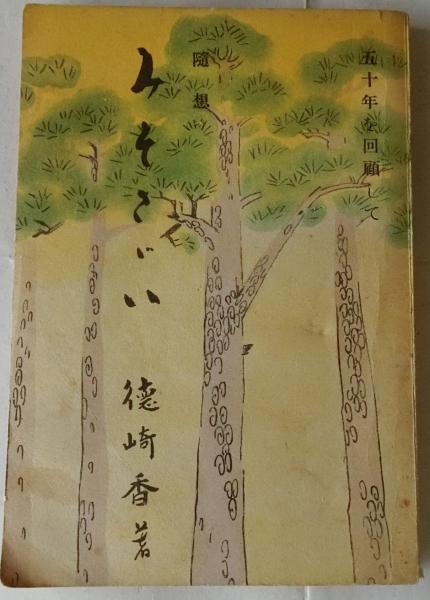 五十年を回顧して
隨想
みそさゞい
徳崎香著